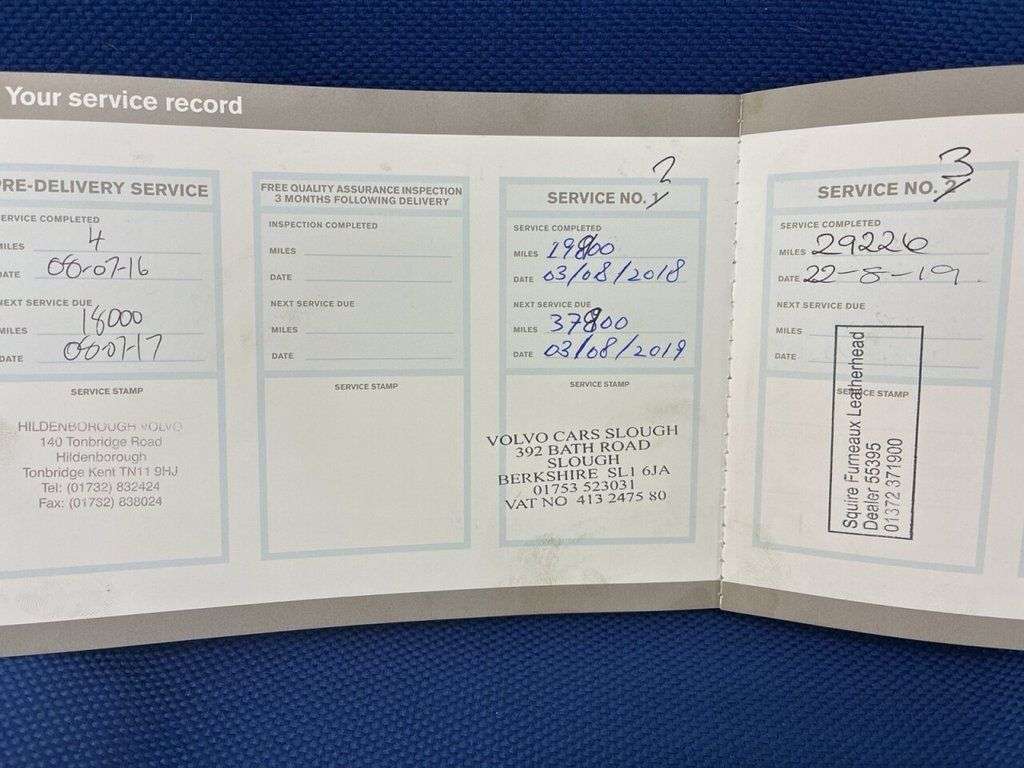 Your service record
PRE-DELIVERY SERVICE
ERVICE COMPLETED
MILES 4
DATE 06-07-16
NEXT SERVICE DUE
MILES 18000
DATE 06-07-17
SERVICE STAMP
HILDENBOROUGH VOLVO
140 Tonbridge Road
Hildenborough
Tonbridge Kent TN11 9HJ
Tel: (01732) 832424
Fax: (01732) 838024
FREE QUALITY ASSURANCE INSPECTION
3 MONTHS FOLLOWING DELIVERY
INSPECTION COMPLETED
MILES
DATE
NEXT SERVICE DUE
MILES
DATE
SERVICE STAMP
2
SERVICE NO. 1
SERVICE COMPLETED
MILES 19800
DATE 03/08/2018
NEXT SERVICE DUE
MILES 37800
DATE 03/08/2019
SERVICE STAMP
VOLVO CARS SLOUGH
392 BATH ROAD
SLOUGH
BERKSHIRE SL1 6JA
01753 523031
VAT NO 413 2475 80
3
SERVICE NO. 2
SERVICE COMPLETED
MILES 29226
DATE 22-8-19
NEXT SERVICE DUE
MILES
DATE
SERVICE STAMP
Squire Furneaux Leatherhead
Dealer 55395
01372 371900